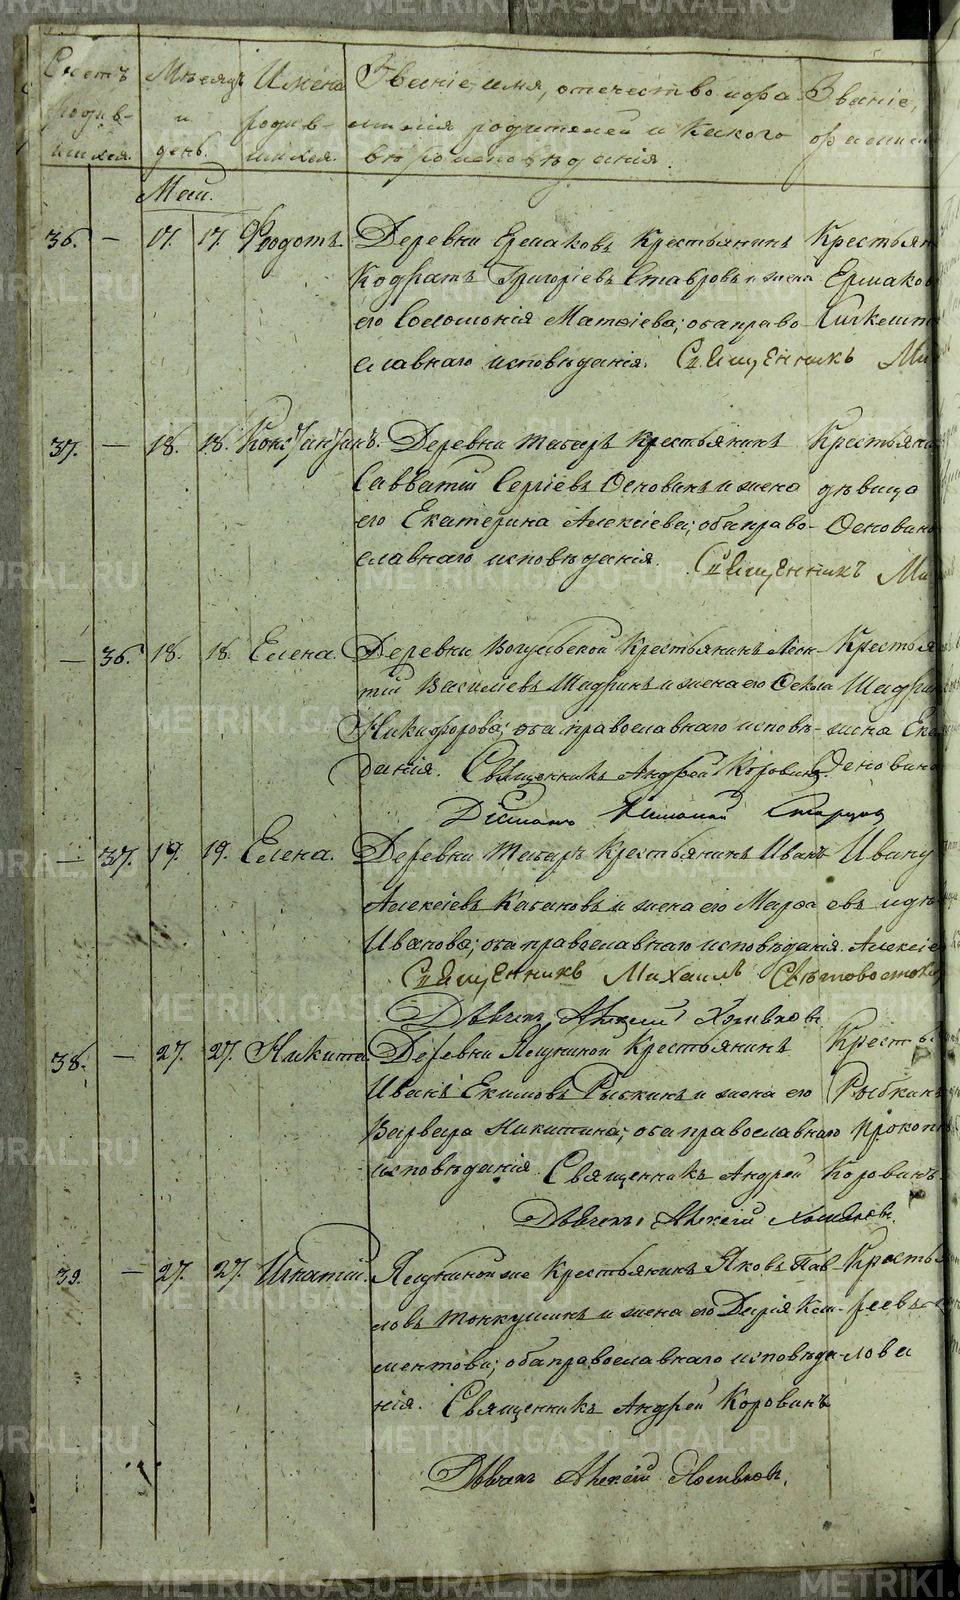 Счетъ родив-шихся.
Мѣсяцъ и день.
Имена родив-шихся.
Званіе, имя, отечество и фа-
милія родителей и какого
вѣроисповѣданія.
Званіе,
фамилі
Май.
36. — 17. 17. Ѳеодотъ. Деревни Ермаковъ крестьянинъ
Кодратъ Григоріевъ Ставровъ и жена
его Соломонія Матѳіева; оба право-
славнаго исповѣданія. Священникъ Ми
Крестьян
Ермаков
37. — 18. 18. Константинъ. Деревни Таборъ крестьянинъ
Савватій Сергіевъ Основинъ и жена
его Екатерина Алексіева; оба право-
славнаго исповѣданія. Священникъ Ми
Крестьяни
дѣвица
Основино
— 36. 18. 18. Елена. Деревни Вогульской крестьянинъ Леон-
тій Василіевъ Шадринъ и жена его Ѳекла
Никифорова; оба православнаго исповѣ-
данія. Священникъ Андрей Коровинъ.
Крестья
Шадрин
жена Ека
Основино
— 37. 19. 19. Елена. Деревни Таборъ крестьянинъ Иванъ
Алексіевъ Кабановъ и жена его Марѳа
Иванова; оба православнаго исповѣданія.
Священникъ Михаилъ Свѣтовостоков
Дьячекъ Алексій Хомяковъ
Ивану
евъ и дѣ
Алексіе
38. — 27. 27. Никита. Деревни Ялуниной крестьянинъ
Иванъ Екимовъ Рыбкинъ и жена его
Варвара Никитина; оба православнаго
исповѣданія. Священникъ Андрей Коровинъ.
Дьячекъ Алексій Хомяковъ.
Кресть
Рыбкинъ
Прокоп
39. — 27. 27. Игнатій. Ялуниной же крестьянинъ Яковъ Пав-
ловъ Тонкушинъ и жена его Дарія Кли-
ментова; оба православнаго исповѣда-
нія. Священникъ Андрей Коровинъ
Дьячекъ Алексій Хомяковъ.
Кресть
феевъ
лова
METRIKI.GASO-URAL.RU